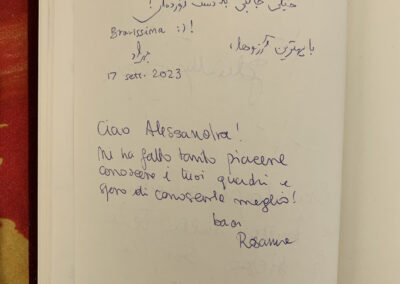 خیلی جالبی به دست آورده‌ای!
Bravissima :)!
با بهترین آرزوها،
بهزاد
17 sett. 2023
Ciao Alessandra!
Mi ha fatto tanto piacere
conoscere i tuoi quadri e
spero di conoscerle meglio!
baci
Rosanna